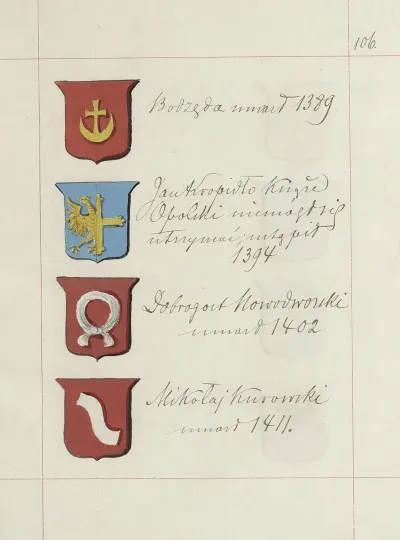 106.
Bodzęda umarł 1389
Jan Kropidło Książe
Opolski niemógł się
utrzymać, ustąpił
1394
Dobrogost Nowodworski
umarł 1402.
Mikołaj Kurowski
umarł 1411.